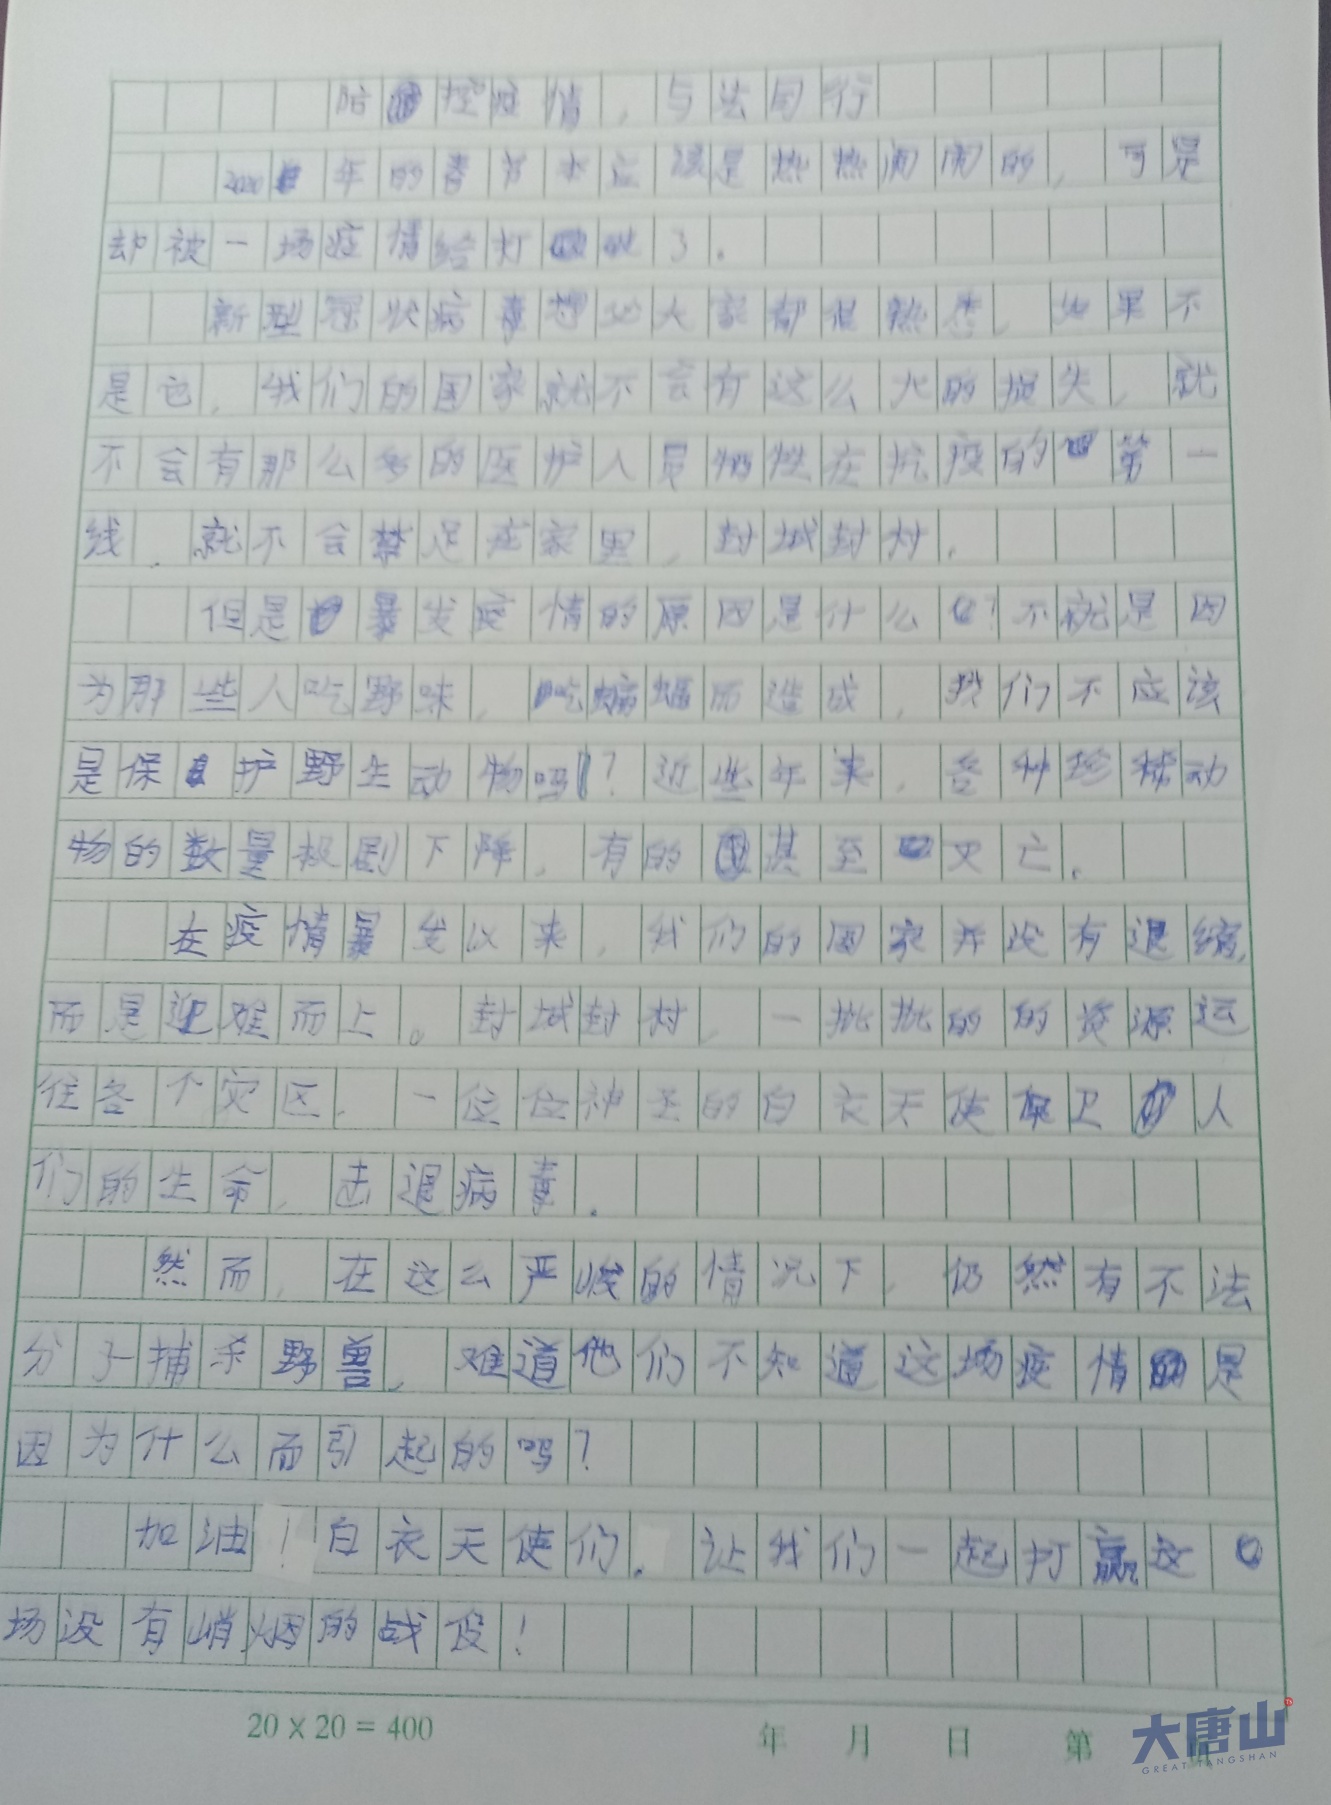 防控疫情，与法同行
2020年的春节本应该是热热闹闹的，可是
却被一场疫情给打了。
新型冠状病毒想必大家都很熟悉，如果不
是它，我们的国家就不会有这么大的损失，就
不会有那么多的医护人员牺牲在抗疫的第一
线，就不会禁足在家里，封城封村。
但是暴发疫情的原因是什么？不就是因
为那些人吃野味，吃蝙蝠而造成，我们不应该
是保护野生动物吗？近些年来，各种珍稀动
物的数量极剧下降，有的甚至灭亡。
在疫情暴发以来，我们的国家并没有退缩，
而是迎难而上。封城封村，一批批的的资源运
往各个灾区，一位位神圣的白衣天使保卫人
们的生命，击退病毒。
然而，在这么严峻的情况下，仍然有不法
分子捕杀野兽，难道他们不知道这场疫情是
因为什么而引起的吗？
加油！白衣天使们。让我们一起打赢这
场没有硝烟的战役！
20×20=400 年 月 日 第
大唐山
GREAT TANGSHAN